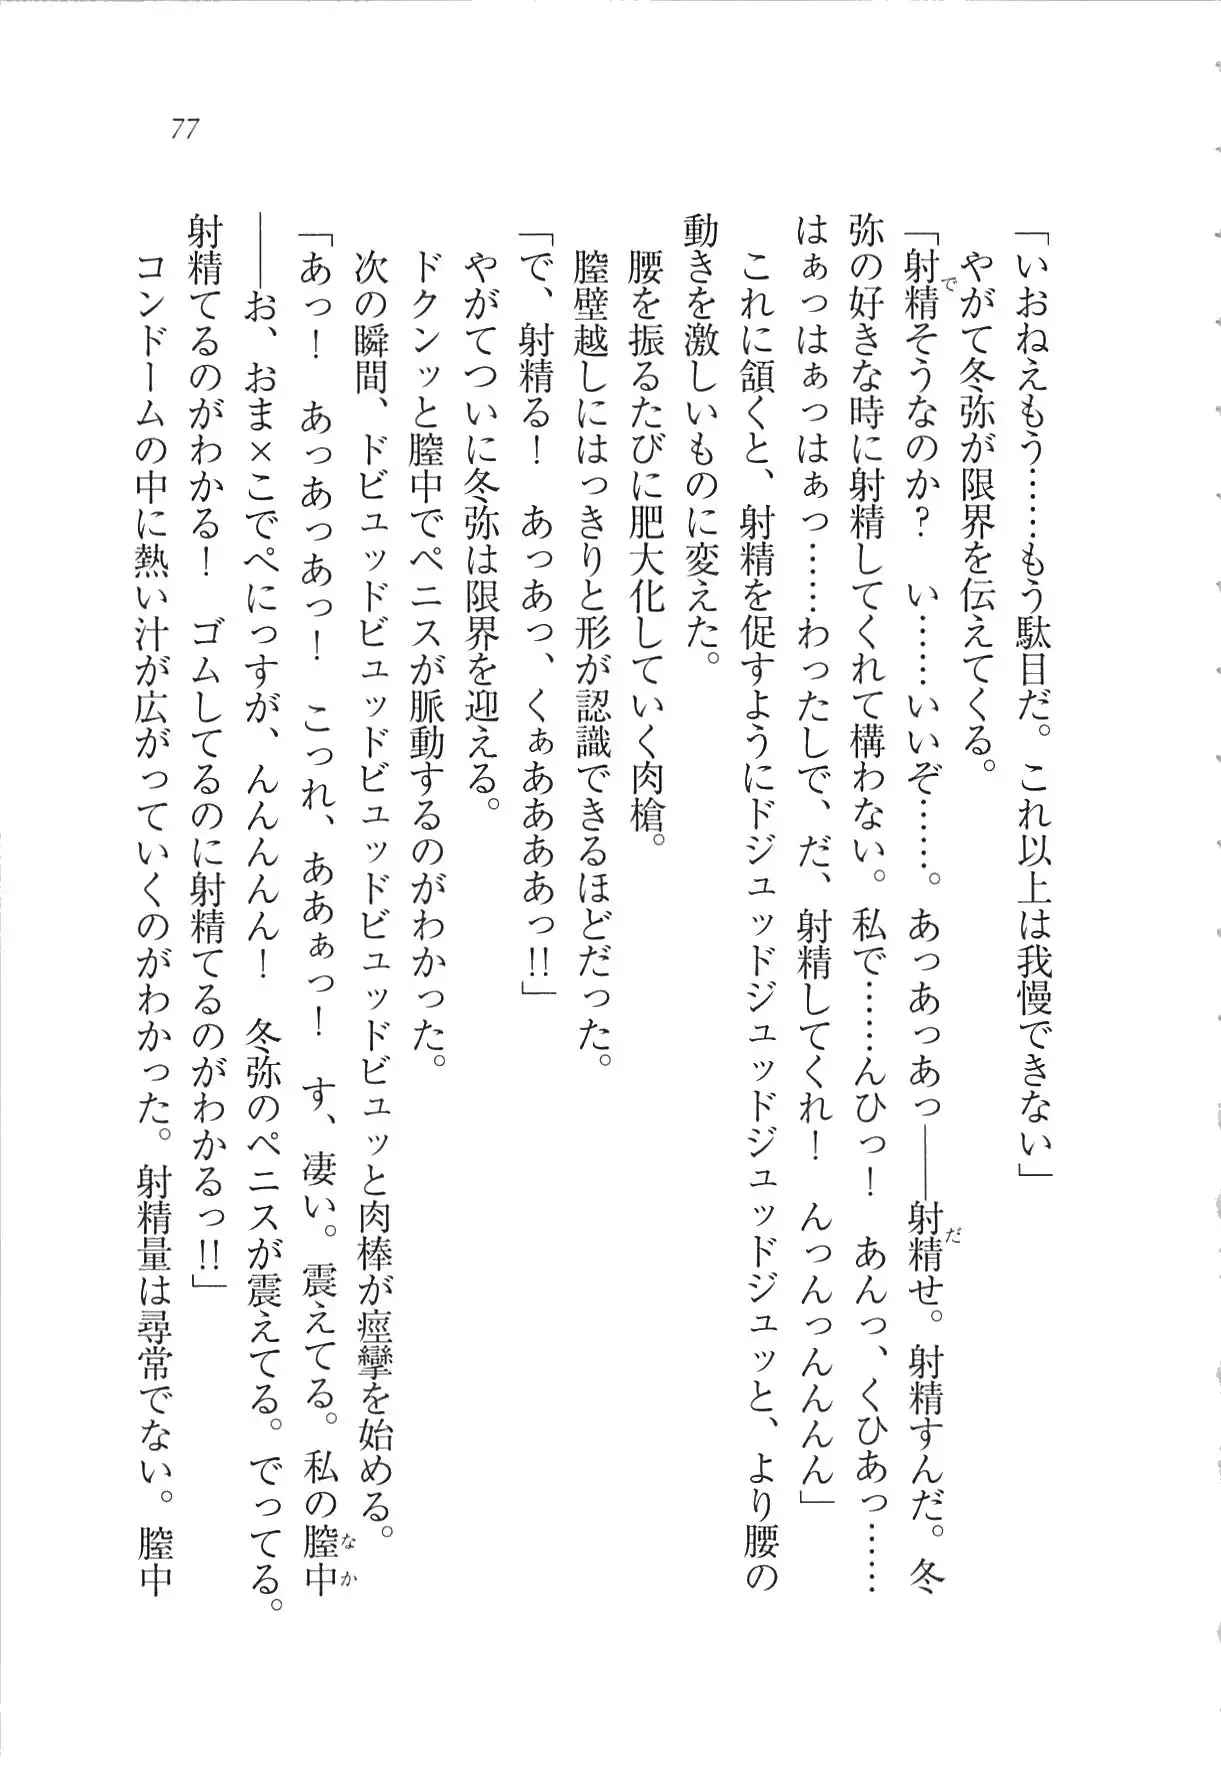 77
「いおねえもう……もう駄目だ。これ以上は我慢できない」
やがて冬弥が限界を伝えてくる。
「射精そうなのか？　い……いいぞ……。あっあっあっ――射精せ。射精すんだ。冬
で
だ
弥の好きな時に射精してくれて構わない。私で……んひっ！　あんっ、くひあっ……
はぁっはぁっはぁっ……わったしで、だ、射精してくれ！　んっんっんんんん」
これに頷くと、射精を促すようにドジュッドジュッドジュッドジュッと、より腰の
動きを激しいものに変えた。
腰を振るたびに肥大化していく肉槍。
膣壁越しにはっきりと形が認識できるほどだった。
「で、射精る！　あっあっ、くぁああああっ!!」
やがてついに冬弥は限界を迎える。
ドクンッと膣中でペニスが脈動するのがわかった。
次の瞬間、ドビュッドビュッドビュッドビュッと肉棒が痙攣を始める。
「あっ！　あっあっあっ！　こっれ、ああぁっ！　す、凄い。震えてる。私の膣中
なか
――お、おま×こでぺにっすが、んんんんん！　冬弥のペニスが震えてる。でってる。
射精てるのがわかる！　ゴムしてるのに射精てるのがわかるっ!!」
コンドームの中に熱い汁が広がっていくのがわかった。射精量は尋常でない。膣中